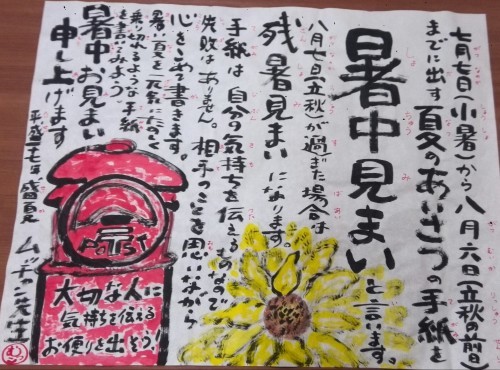 七月七日(小暑)から八月六日(立秋の前日)
までに出す夏のあいさつの手紙を
暑中見まいと言います。
八月七日(立秋)が過ぎた場合は
残暑見まいになります。
手紙は自分の気持ちを伝えるものなので
失敗はありません。相手のことを思いながら
心をこめて書きます。
暑い夏を元気にたのしく
乗り切れるような手紙
を書いてみよう。
暑中お見まい
申し上げます
盛夏
先生
POST
大切な人に
気持ちを伝える
お便りを出そう。